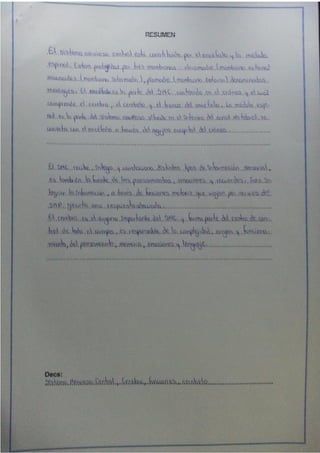 RESUMEN
El sistema nervioso central está constituido por el encéfalo y la médula
espinal. Están protegidos por tres membranas: duramadre (membrana externa)
aracnoides (membrana intermedia), piamadre (membrana interna) denominadas
meninges. El encéfalo es la parte del SNC contenida en el cráneo y el cual
comprende el cerebro, el cerebelo y el tronco del encéfalo. La médula espi-
nal es la parte del sistema nervioso situado en el interior del canal vertebral, se
conecta con el encéfalo a través del agujero occipital del cráneo.
El SNC recibe, integra y correlaciona distintos tipos de información sensorial,
es también la fuente de los pensamientos, emociones y recuerdos. Tras in-
tegrar la información, a través de funciones motoras que viajan por nervios del
SNP, ejecuta una respuesta adecuada.
El cerebro es el órgano importante del SNC y forma parte del centro de con-
trol de todo el cuerpo, es responsable de la complejidad, origen y funciona-
miento, del pensamiento, memoria, emociones y lenguaje.
Decs:
Sistema Nervioso Central, Cerebro, funciones, encéfalo